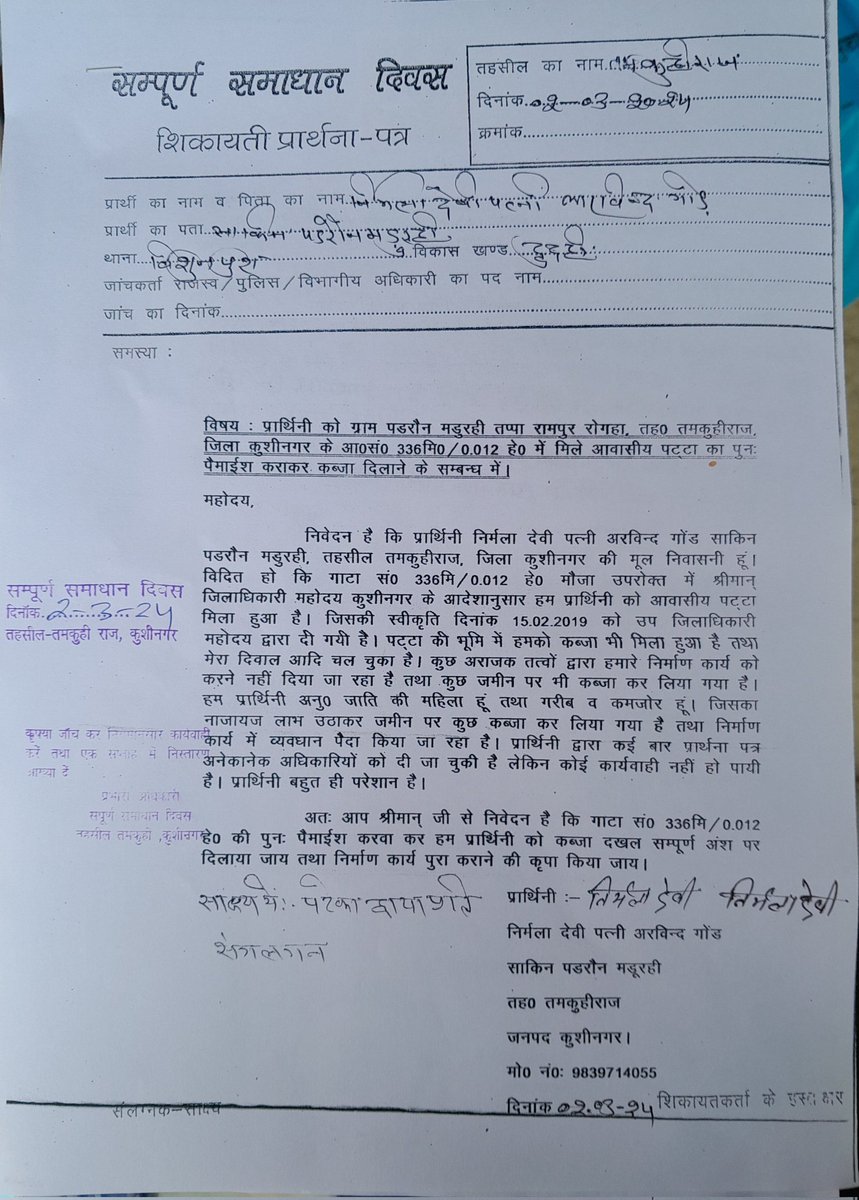 सम्पूर्ण समाधान दिवस
शिकायती प्रार्थना-पत्र
तहसील का नाम.. तमकुहीराज
दिनांक..02-03-2024
क्रमांक
प्रार्थी का नाम व पिता का नाम..निर्मला देवी पत्नी अरविन्द गोंड़
प्रार्थी का पता..साकिन पडरौन मडुरही
थाना...विशुनपुरा विकास खण्ड..दुदही
जांचकर्ता राजस्व/पुलिस/विभागीय अधिकारी का पद नाम
जांच का दिनांक
समस्या :
विषय : प्रार्थिनी को ग्राम पडरौन मडुरही तप्पा रामपुर रोगहा, तह0 तमकुहीराज,
जिला कुशीनगर के आ0सं0 336मि0/0.012 हे0 में मिले आवासीय पट्टा का पुनः
पैमाईश कराकर कब्जा दिलाने के सम्बन्ध में।
महोदय,
निवेदन है कि प्रार्थिनी निर्मला देवी पत्नी अरविन्द गोंड साकिन
पडरौन मडुरही, तहसील तमकुहीराज, जिला कुशीनगर की मूल निवासनी हूं।
विदित हो कि गाटा सं0 336मि/0.012 हे0 मौजा उपरोक्त में श्रीमान्
जिलाधिकारी महोदय कुशीनगर के आदेशानुसार हम प्रार्थिनी को आवासीय पट्टा
मिला हुआ है। जिसकी स्वीकृति दिनांक 15.02.2019 को उप जिलाधिकारी
महोदय द्वारा दी गयी है। पट्टा की भूमि में हमको कब्जा भी मिला हुआ है तथा
मेरा दिवाल आदि चल चुका है। कुछ अराजक तत्वों द्वारा हमारे निर्माण कार्य को
करने नहीं दिया जा रहा है तथा कुछ जमीन पर भी कब्जा कर लिया गया है।
हम प्रार्थिनी अनु0 जाति की महिला हूं तथा गरीब व कमजोर हूं। जिसका
नाजायज लाभ उठाकर जमीन पर कुछ कब्जा कर लिया गया है तथा निर्माण
कार्य में व्यवधान पैदा किया जा रहा है। प्रार्थिनी द्वारा कई बार प्रार्थना पत्र
अनेकानेक अधिकारियों को दी जा चुकी है लेकिन कोई कार्यवाही नहीं हो पायी
है। प्रार्थिनी बहुत ही परेशान है।
सम्पूर्ण समाधान दिवस
दिनॉक.2-3-24
तहसील-तमकुही राज, कुशीनगर
कृप्या जाँच कर नियमानुसार कार्यवाही
करें तथा एक सप्ताह में निस्तारण
आख्या दें
प्रभारी अधिकारी
सपूर्ण समाधान दिवस
तहसील तमकुही ,कुशीनगर
अतः आप श्रीमान् जी से निवेदन है कि गाटा सं0 336मि/0.012
हे0 की पुनः पैमाईश करवा कर हम प्रार्थिनी को कब्जा दखल सम्पूर्ण अंश पर
दिलाया जाय तथा निर्माण कार्य पुरा कराने की कृपा किया जाय।
प्रार्थिनी :- निर्मला देवी निर्मला देवी
निर्मला देवी पत्नी अरविन्द गोंड
साकिन पडरौन मडूरही
तह0 तमकुहीराज
जनपद कुशीनगर।
मो0 नं0: 9839714055
दिनांक 02.03-24 शिकायतकर्ता के हस्ताक्षर
संलग्नक-साक्ष्य